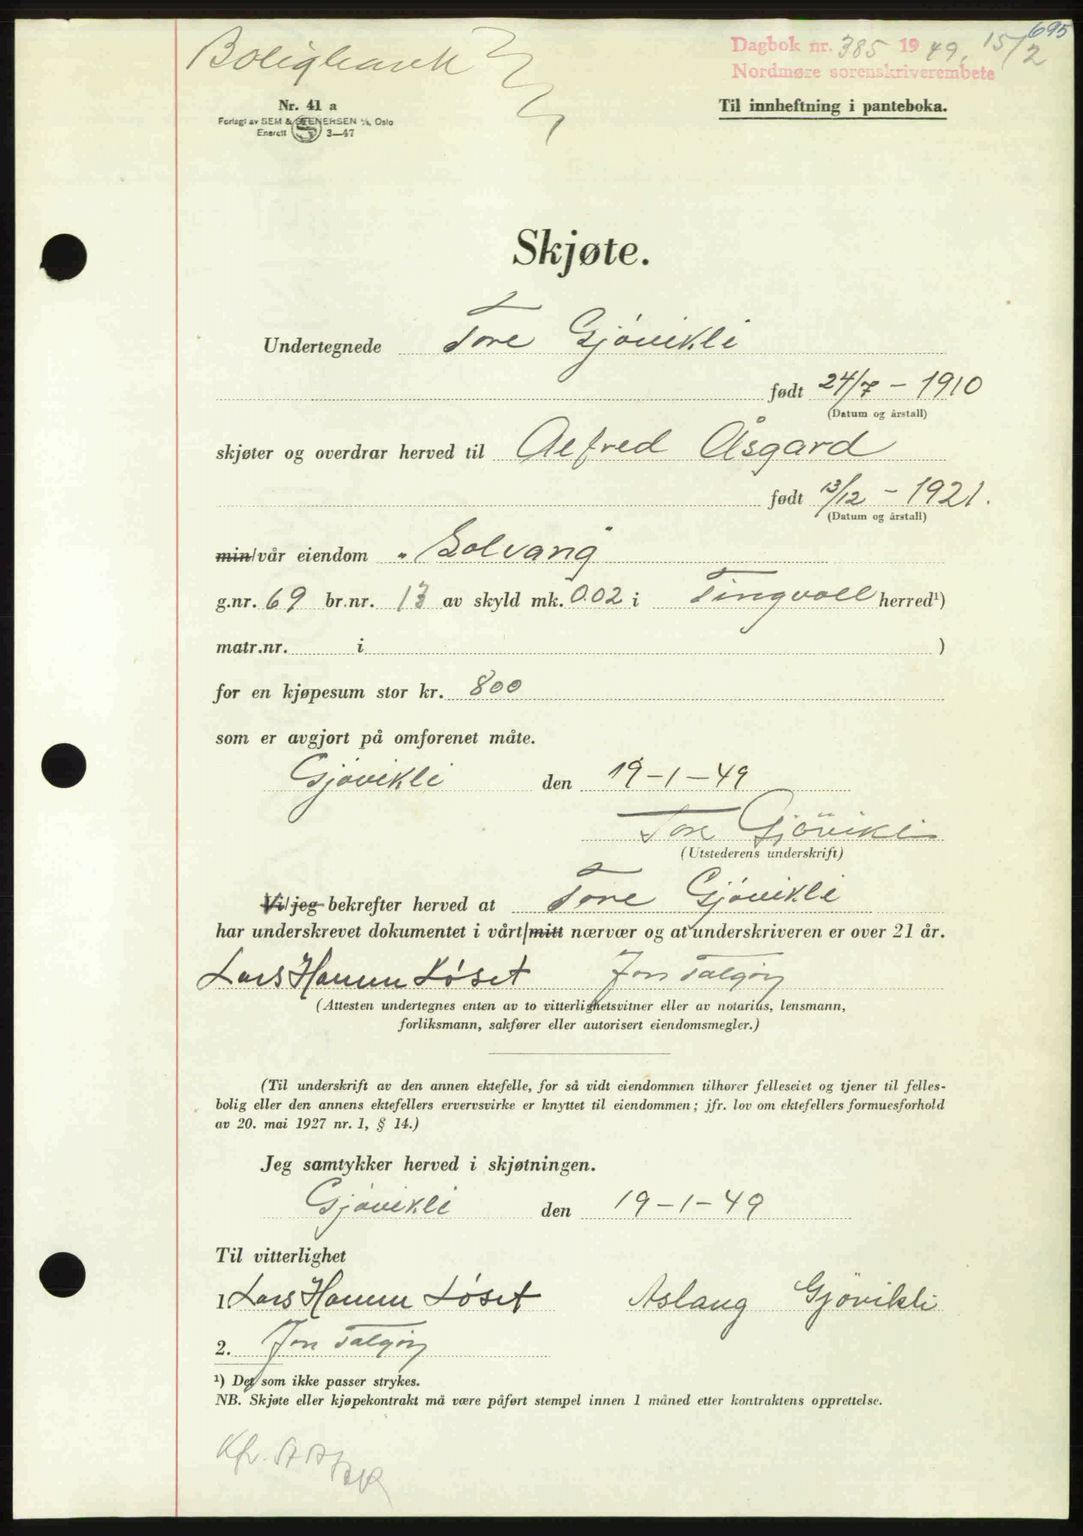 695
Boligbank
Dagbok nr. 385 1949. 15/2
Nordmøre sorenskriverembete
Nr. 41 a
Til innheftning i panteboka.
Forlagt av SEM & STENERSEN A/S, Oslo
Enerett S 3—47
Skjøte.
Undertegnede Tore Gjövikli
født 24/7 - 1910
(Datum og årstall)
skjøter og overdrar herved til Alfred Åsgard
født 13/12 - 1921.
(Datum og årstall)
min/vår eiendom "Solvang"
g.nr. 69 br.nr. 13 av skyld mk. 0.02 i Tingvoll herred¹)
matr.nr. i )
for en kjøpesum stor kr. 800
som er avgjort på omforenet måte.
Gjövikli den 19-1-49
Tore Gjövikli
(Utstederens underskrift)
Vi/jeg bekrefter herved at Tore Gjövikli
har underskrevet dokumentet i vårt/mitt nærvær og at underskriveren er over 21 år.
Lars Hamn Løset Jon Talgöy
(Attesten undertegnes enten av to vitterlighetsvitner eller av notarius, lensmann,
forliksmann, sakfører eller autorisert eiendomsmegler.)
(Til underskrift av den annen ektefelle, for så vidt eiendommen tilhører felleseiet og tjener til felles-
bolig eller den annens ektefellers ervervsvirke er knyttet til eiendommen; jfr. lov om ektefellers formuesforhold
av 20. mai 1927 nr. 1, § 14.)
Jeg samtykker herved i skjøtningen.
Gjövikli den 19-1-49
Til vitterlighet
1. Lars Hamn Løset Aslaug Gjövikli
2. Jon Talgöy
¹) Det som ikke passer strykes.
NB. Skjøte eller kjøpekontrakt må være påført stempel innen 1 måned etter kontraktens opprettelse.